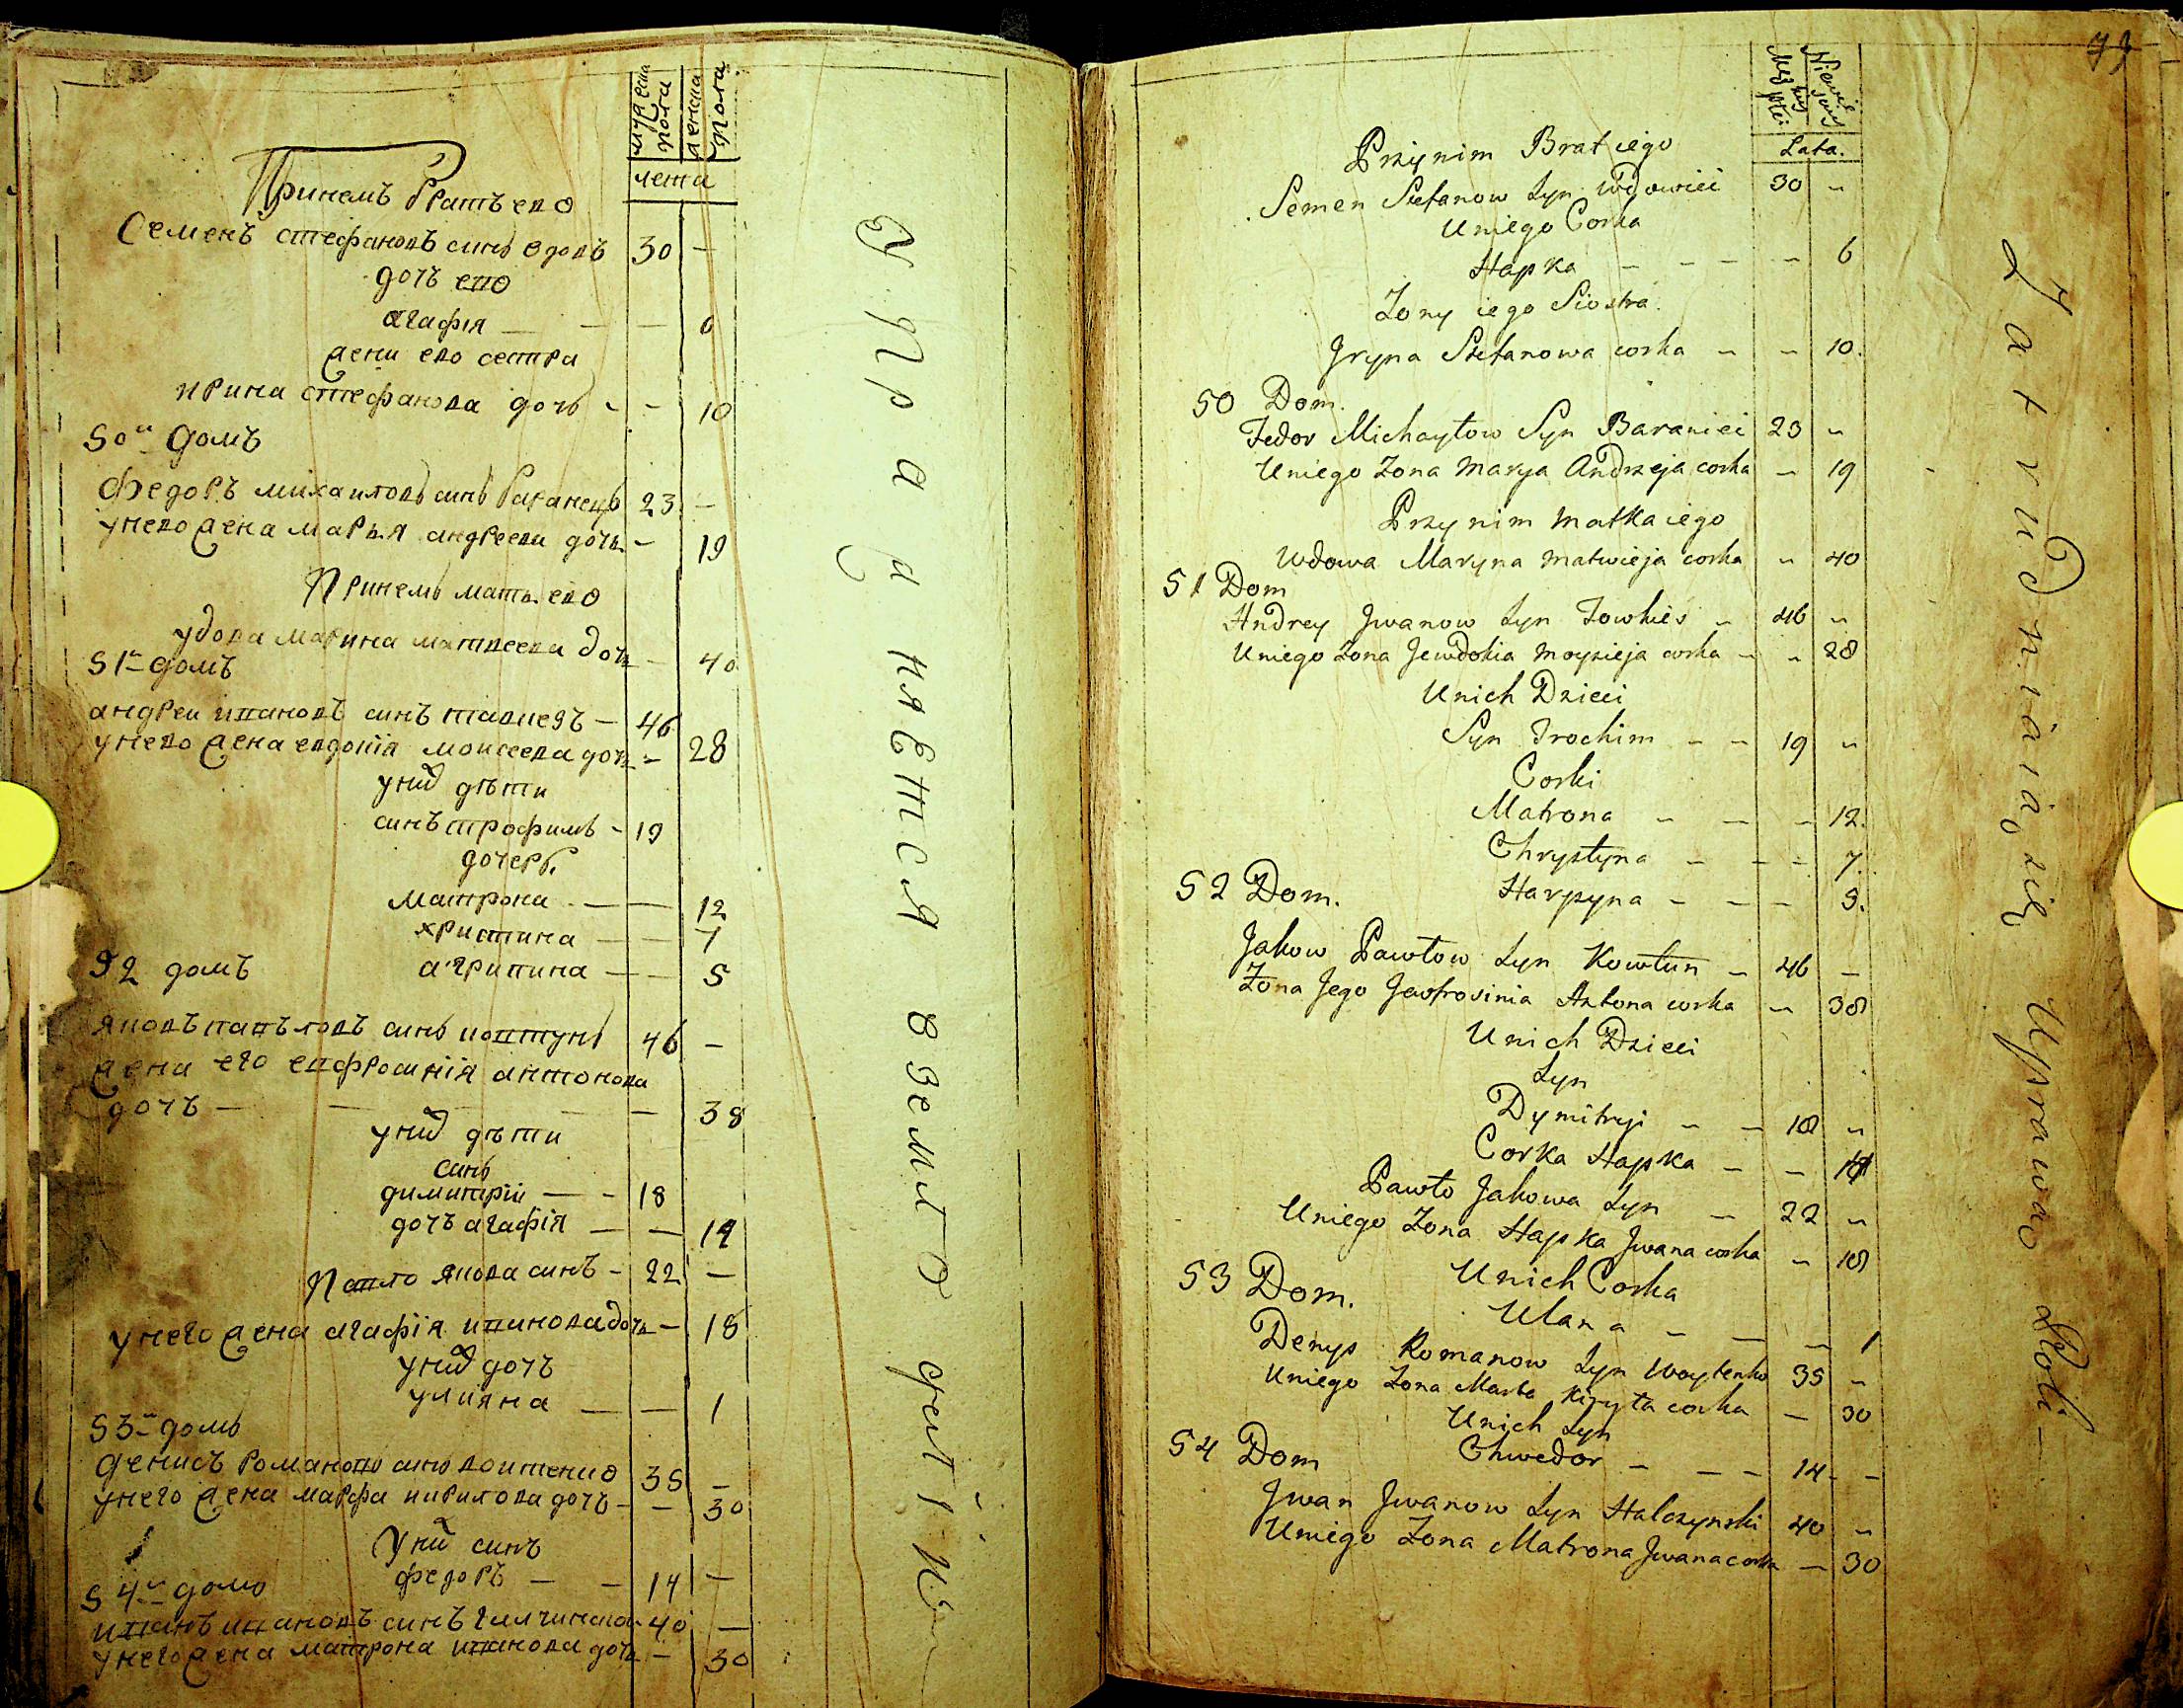 мужеска пола
женска пола
лета
Принемъ братъ ево
Семенъ стефановъ синъ вдовъ 30 —
дочъ ево
агафія — — — 6
жени ево сестра
ирина стефанова дочъ - - 10
50й домъ
федоръ михаиловъ синъ баранецъ 23 —
унево жена марья андреева дочъ - 19
Принемъ мать ево
удова марина матвеева дочъ — 40
51й домъ
андреи ивановъ синъ — 46
унево жена евдокія моисеева дочъ - 28
уних дѣти
синъ трофимъ - 19
дочеръ
матрона — — 12
христина — — 7
52 домъ агрипина — — 5
яковъ павъловъ синъ ковтунъ 46 —
жена его евфросинія антонова
дочъ — — — — 38
уних дѣти
синъ
димитрій — - 18
дочъ агафія — — 14
Павло якова синъ - 22 —
унего жена агафія иванова дочъ — 18
уних дочъ
улияна — — 1
53й домъ
денисъ романовъ синъ воитенко 35 —
унего жена марфа кирилова дочъ - — 30
Уних синъ
федоръ — — 14 —
54й домъ
иванъ ивановъ синъ 40 —
унего жена матрона иванова дочъ — 30
Упражняется вземлоделіи
Męzkiey płci
Niewieściey
Lata.
Przynim Brat iego
Semen Stefanow Syn Wdowiec 30 "
Uniego Corka
Hapka — — — — 6
Zony iego Siostra
Jryna Stefanowa corka — — 10.
50 Dom.
Fedor Michayłow Syn Baraniec 23 "
Uniego Zona Marya Andrzeja corka — 19
Przynim Matka iego
Wdowa Maryna Matwieja corka " 40
51 Dom
Andrey Jwanow Syn — 46 "
Uniego Zona Jewdokia Moysieja corka — " 28
Unich Dzieci
Syn Trochim — — 19 "
Corki
Matrona — — — 12.
Chrystyna — — — 7.
52 Dom. Harpyna — — — 5.
Jakow Pawłow Syn Kowtun — 46 —
Zona Jego Jewfrosinia Antona corka — 38
Unich Dzieci
Syn
Dymitryi — — 18 "
Corka Hapka — — 14
Pawło Jakowa Syn — 22 "
Uniego Zona Hapka Jwana corka — 18
53 Dom. Unich Corka
Ulana — — — 1
Denys Romanow Syn Woytenko 35 —
Uniego Zona Marta Kiryła corka — 30
Unich Syn
54 Dom Chwedor — — — 14 —
Jwan Jwanow Syn Halczynski 40 "
Uniego Zona Matrona Jwana corka — 30
Zatrudniaią się Uprawą Roli —